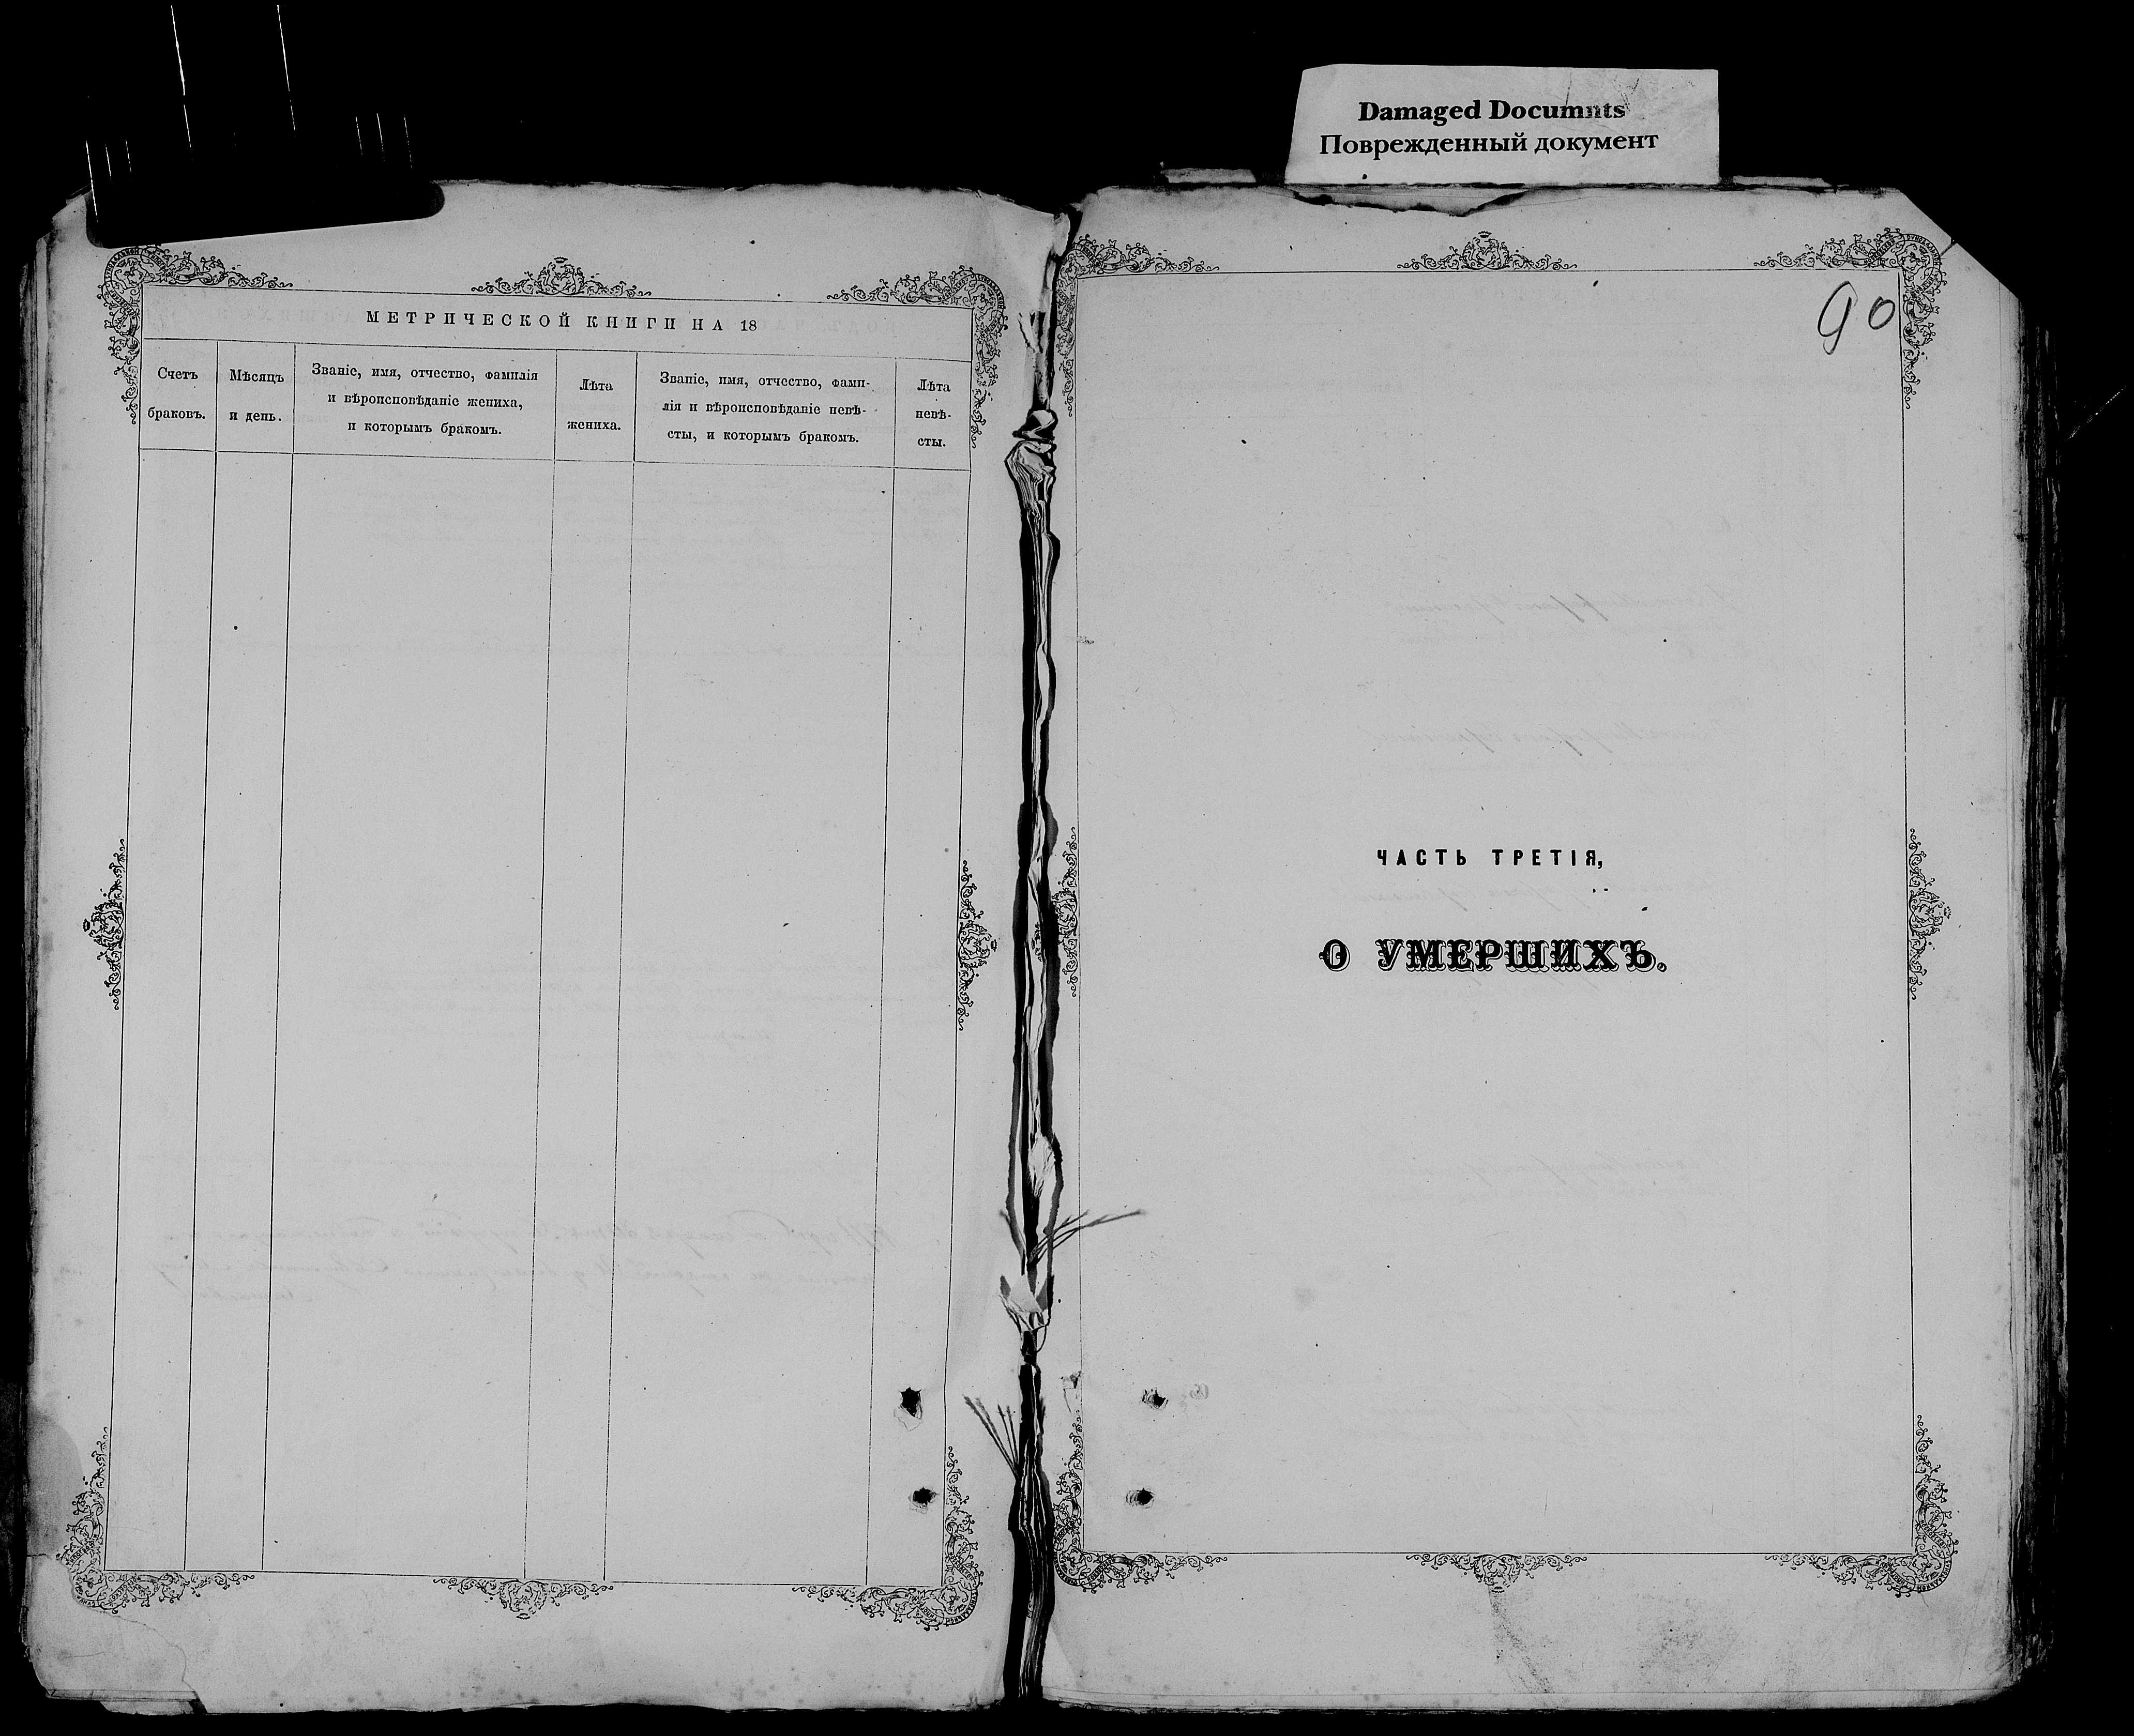 Damaged Documnts
Поврежденный документ
МЕТРИЧЕСКОЙ КНИГИ НА 18
Счетъ браковъ.
Мѣсяцъ и день.
Званіе, имя, отчество, фамилія
и вѣроисповѣданіе жениха,
и которымъ бракомъ.
Лѣта
жениха.
Званіе, имя, отчество, фами-
лія и вѣроисповѣданіе невѣ-
сты, и которымъ бракомъ.
Лѣта
невѣ-
сты.
90
ЧАСТЬ ТРЕТІЯ,
О УМЕРШИХЪ.